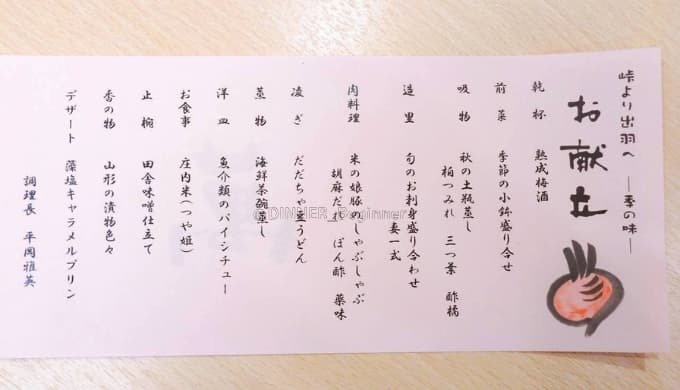 峠より出羽へ ―季の味―
お献立
乾杯 熟成梅酒
前菜 季節の小鉢盛り合せ
吸物 秋の土瓶蒸し
柏つみれ 三つ葉 酢橘
造里 旬のお刺身盛り合わせ
妻一式
肉料理 米の娘豚のしゃぶしゃぶ
胡麻だれ ぽん酢 薬味
凌ぎ だだちゃ豆うどん
蒸物 海鮮茶碗蒸し
洋皿 魚介類のパイシチュー
お食事 庄内米(つや姫)
止椀 田舎味噌仕立て
香の物 山形の漬物色々
デザート 藻塩キャラメルプリン
調理長 平岡雅英
©DINNER_Beginner